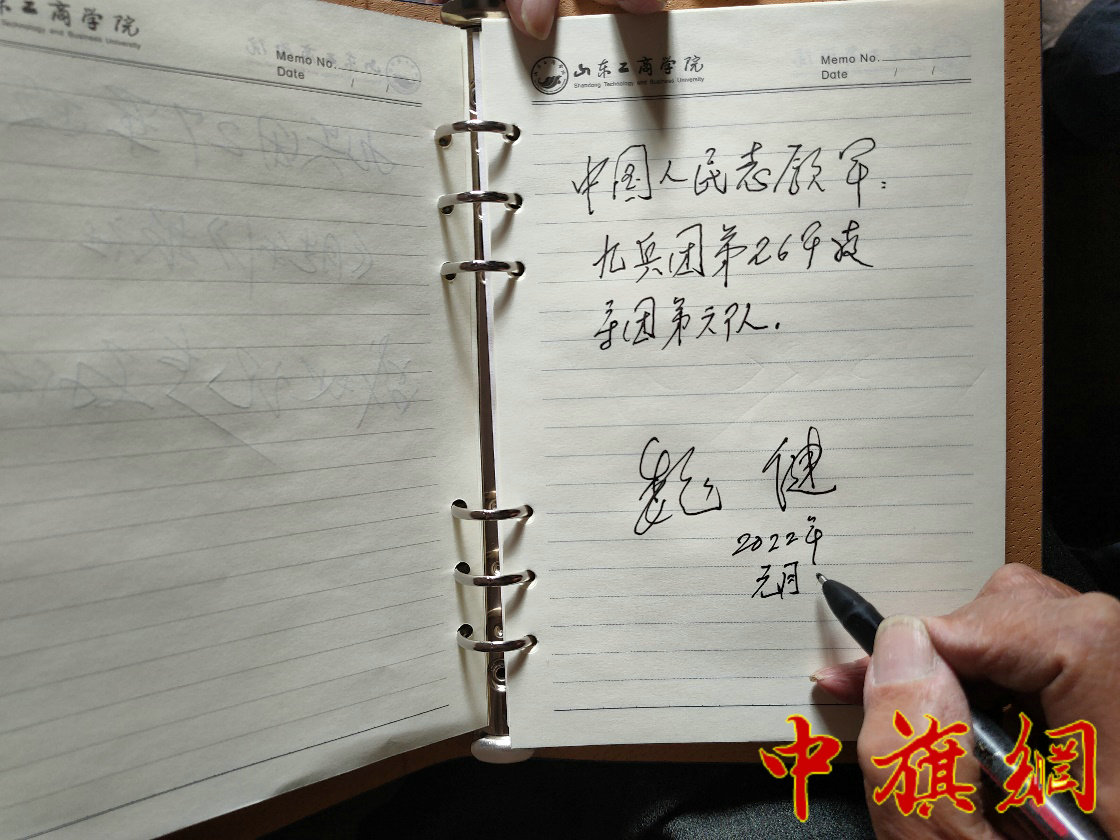 东工商学院
Technology and Business University
Memo No.
Date / /
山东工商学院
Shandong Technology and Business University
Memo No.
Date / /
中国人民志愿军:
九兵团第26军教
导团第六队.
魏健
2022年
元月
中旗網